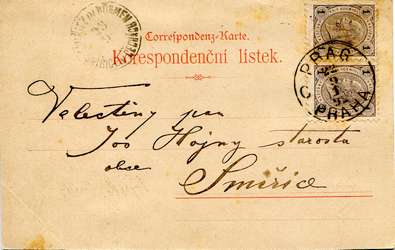 Correspondenz-Karte.
Korespondenční lístek.
PRAG
PRAHA
C
1
1
1
Velectěný pan
Jos Hojny starosta
obce
Smiřic